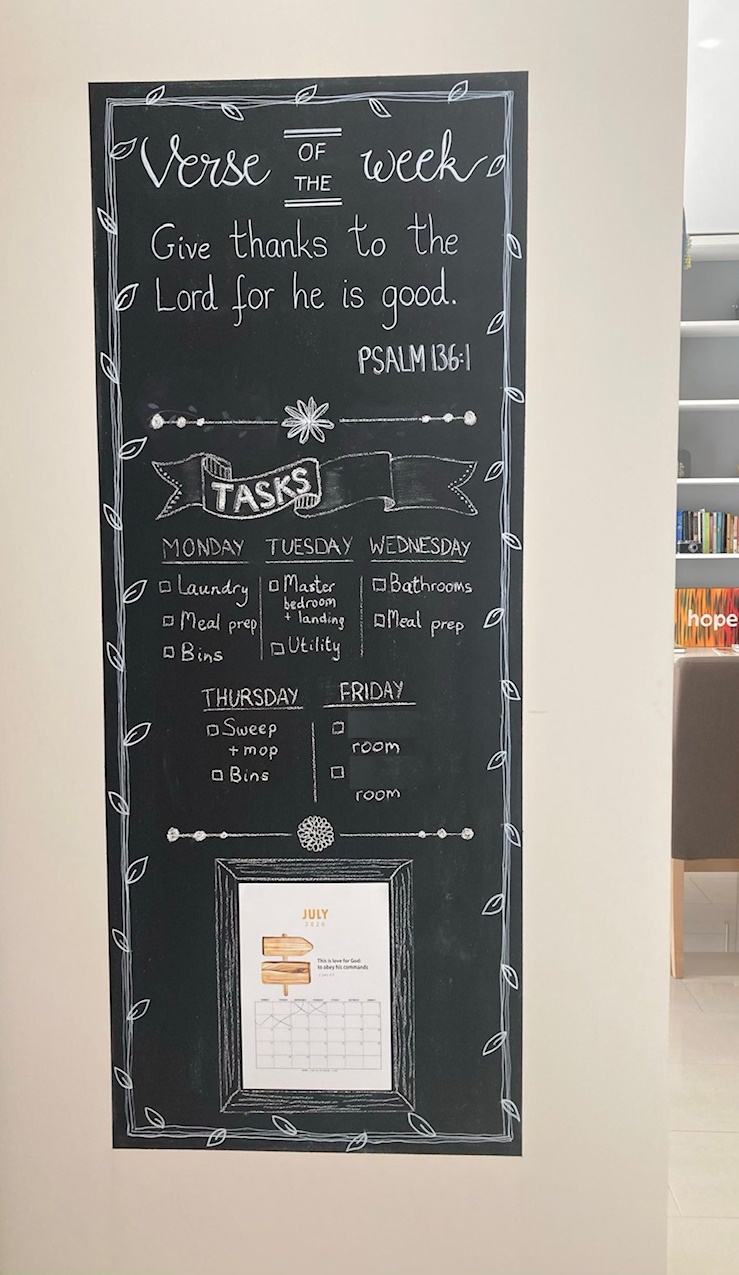 Verse OF THE week
Give thanks to the
Lord for he is good.
PSALM 136:1
TASKS
MONDAY
□ Laundry
□ Meal prep
□ Bins
TUESDAY
□ Master
bedroom
+ landing
□ Utility
WEDNESDAY
□ Bathrooms
□ Meal prep
THURSDAY
□ Sweep
+ mop
□ Bins
FRIDAY
□
room
□
room
JULY
2020
This is love for God:
to obey his commands
hope